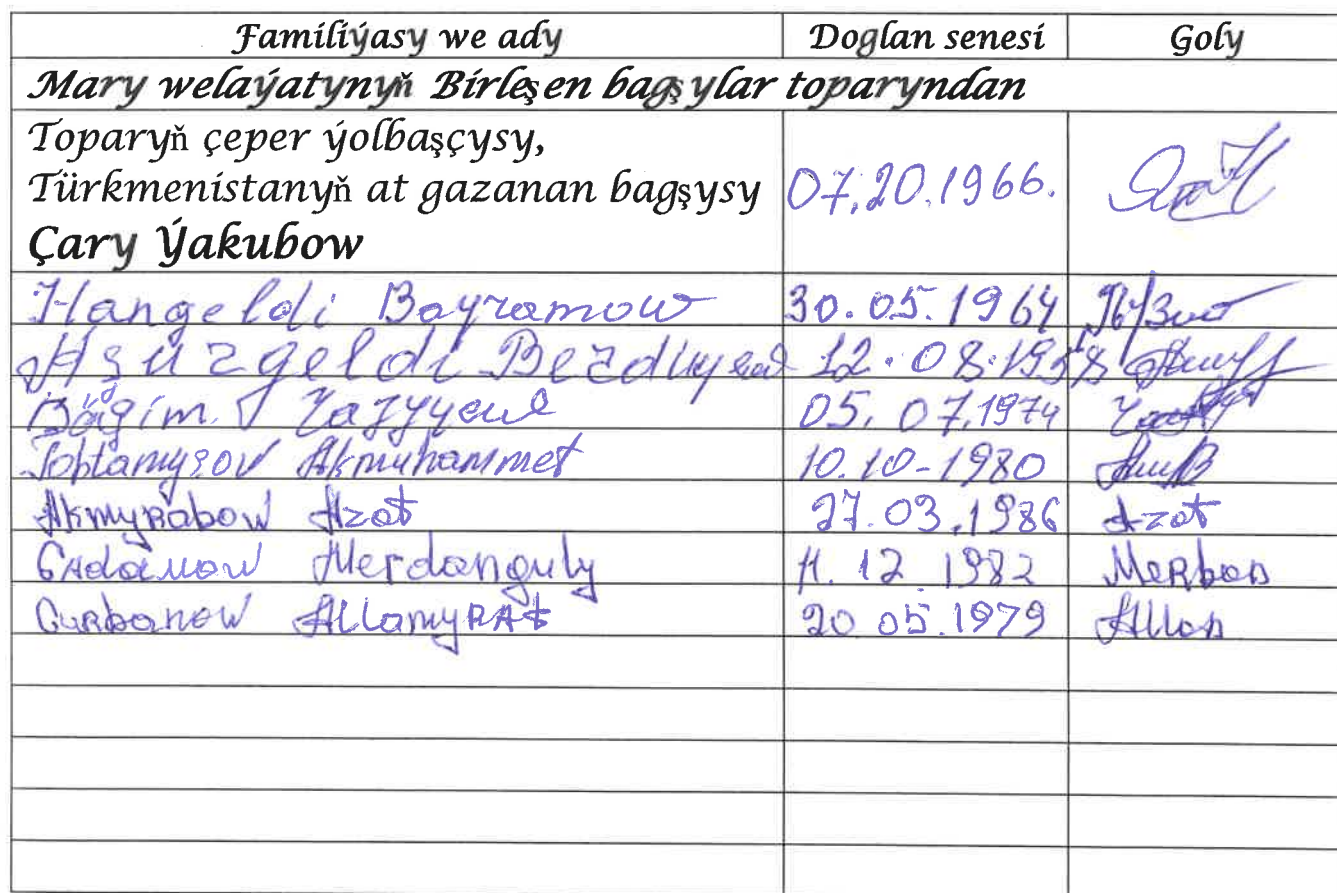 Familiýasy we ady Doglan senesi Goly
Mary welaýatynyň Birleşen bagşylar toparyndan
Toparyň çeper ýolbaşçysy,
Türkmenistanyň at gazanan bagşysy 07.20.1966.
Çary Ýakubow
Hangeldi Bayramow 30.05.1964
Aşurgeldi 12.08.1958
Bägim 05.07.1974
Akmuhammet 10.10-1980
Akmyradow Azat 27.03.1986 Azat
Merdanguly 11.12 1982 Merdan
Gurbanow Allamyrat 20 05.1979 Allan